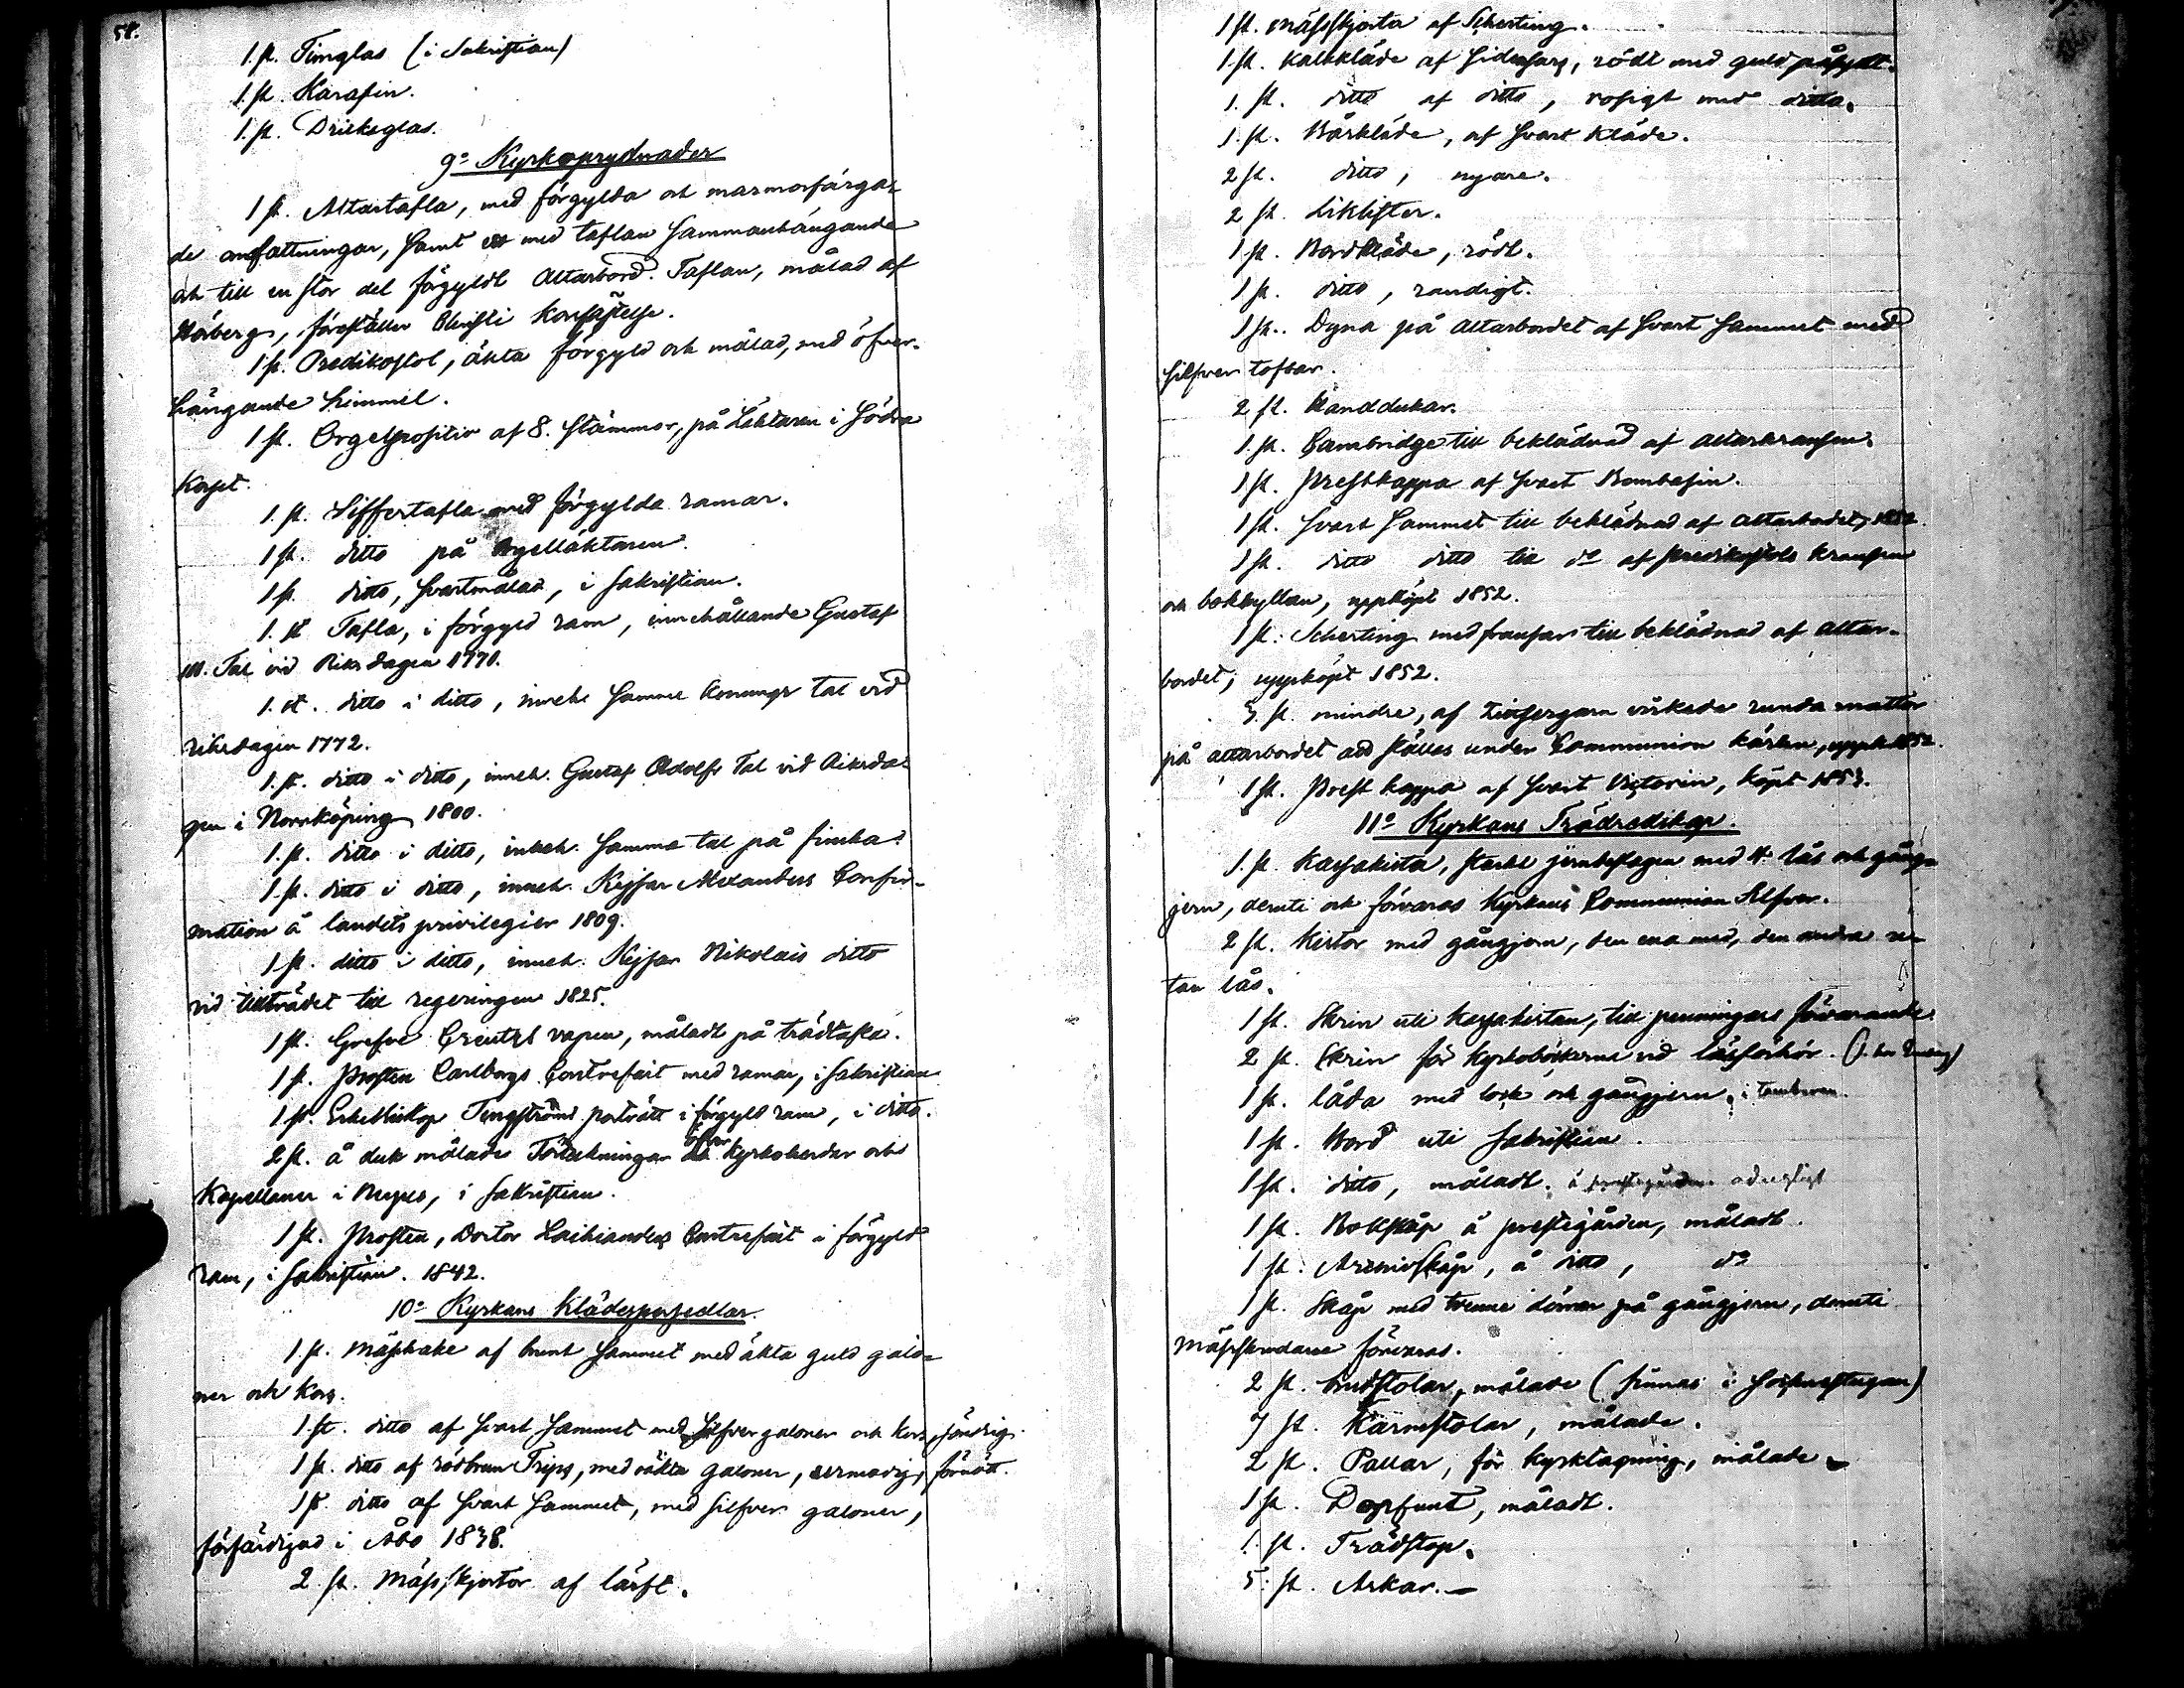 58.
1 st. Timglas (i Sakristian)
1 st. Karafin.
1 st. Dricksglas.
9o Kyrkoprydnader
1 st. Altartafla, med förgylda och marmorfärga-
de omfattningar, samt ett med taflan sammanhängande
och till en stor del förgyldt Altarbord. Taflan, målad af
Hörberg, föreställer Christi Korsfästelse.
1 st. Predikostol, äkta förgyld och målad, med öfver-
hängande himmel.
1 st. Orgelpositiv af 8. stämmor, på Läktaren i Södra
Korset.
1. st. Siffertafla med förgylda ramar.
1 st. ditto på Orgelläktaren.
1 st. ditto, svartmålad, i sakristian.
1. st Tafla, i förgyld ram, innehållande Gustaf
III. Tal vid Riksdagen 1771.
1. st. ditto i ditto, inneh. samme Konungs tal vid
riksdagen 1772.
1. st. ditto i ditto, inneh. Gustaf Adolfs Tal vid Riksda-
gen i Norrköping 1800.
1. st. ditto i ditto, inneh. samma tal på finska.
1. st. ditto i ditto, inneh. Kejsar Alexanders Confir-
mation å landets privilegier 1809.
1 st. ditto i ditto, inneh. Kejsar Nikolais ditto
vid tillträdet till regeringen 1825.
1 st. Grefve Creutz's vapen, måladt på trädtafla.
1 st. Prosten Carlborgs Contrefait med ramar, i sakristian
1 st. Erkebiskop Tengströms portrait i förgyld ram, i ditto.
2 st. å duk målade Förteckningar öfver Kyrkoherdar och
Kapellaner i , i sakristian.
1 st. Prosten, Doctor Laihianders Contrefait i förgyld
ram, i sakristian. 1842.
10o Kyrkans Klädespersedlar.
1. st. Mässhake af brunt sammet med äkta guld galo-
ner och kors.
1. st. ditto af svart sammet med silfver galoner och kors, söndrig.
1 st. ditto af rödbrun Trips, med oäkta galoner, , förnött.
1 st. ditto af svart sammet, med silfver galoner,
förfärdigad i Åbo 1838.
2 st. Mässskjortor af lärft.
1 st. Mässskjorta af Scherting.
1. st. Kalkkläde af sidensars, rödt med guld påsydt.
1. st. ditto af ditto, rosigt med ditto.
1. st. Bårkläde, af svart kläde.
2 st. ditto, nyare.
2 st. Likkistor.
1 st. Bordkläde, rödt.
1 st. ditto, randigt.
1 st. Dyna på altarbordet af svart sammet med
silfver tofsar.
2 st. Handdukar.
1. st. Cambridge till beklädnad af altarkransen.
1 st. Prestkappa af svart Bombasin.
1 st. svart sammet till beklädnad af altarbordet, 1852.
1 st. ditto ditto till do af predikostols kransen
och bokhyllan, uppköpt 1852.
1 st. Scherting med fransar till beklädnad af altar-
bordet, uppköpt 1852.
3. st. mindre, af zefirgarn virkade runda mattor
på altarbordet att ställas under Communion kärlen, uppk. 1852.
1 st. Prest kappa af svart Victorin, köpt 1853.
11o Kyrkans Trädredskap.
1. st. Kassakista, starkt jernbeslagen med 4 lås och gång-
jern, deruti och förvaras Kyrkans Communion Silfver.
2 st. Kistor med gångjern, den ena med, den andra u-
tan lås.
1 st. Skrin uti Kassakistan, till penningars förvarande.
2 st. Skrin för Kyrkoböckerna vid läsförhör.
1 st. låda med lock och gångjern, i tamburen.
1 st. Bord uti sakristian.
1 st. ditto, måladt. å prestgården odugligt
1 st. Bokskåp å prestegården, måladt.
1 st. Archivskåp, å ditto, do
1 st. Skåp med trenne dörrar på gångjern, deruti
Mässskrudarne förvaras.
2 st. brudstolar, målade (finnas i )
7 st. Karmstolar, målade.
2 st. Pallar, för kyrktagning, målade
1 st. Dopfunt, måladt.
1. st. Trädstop.
5. st. Askar.